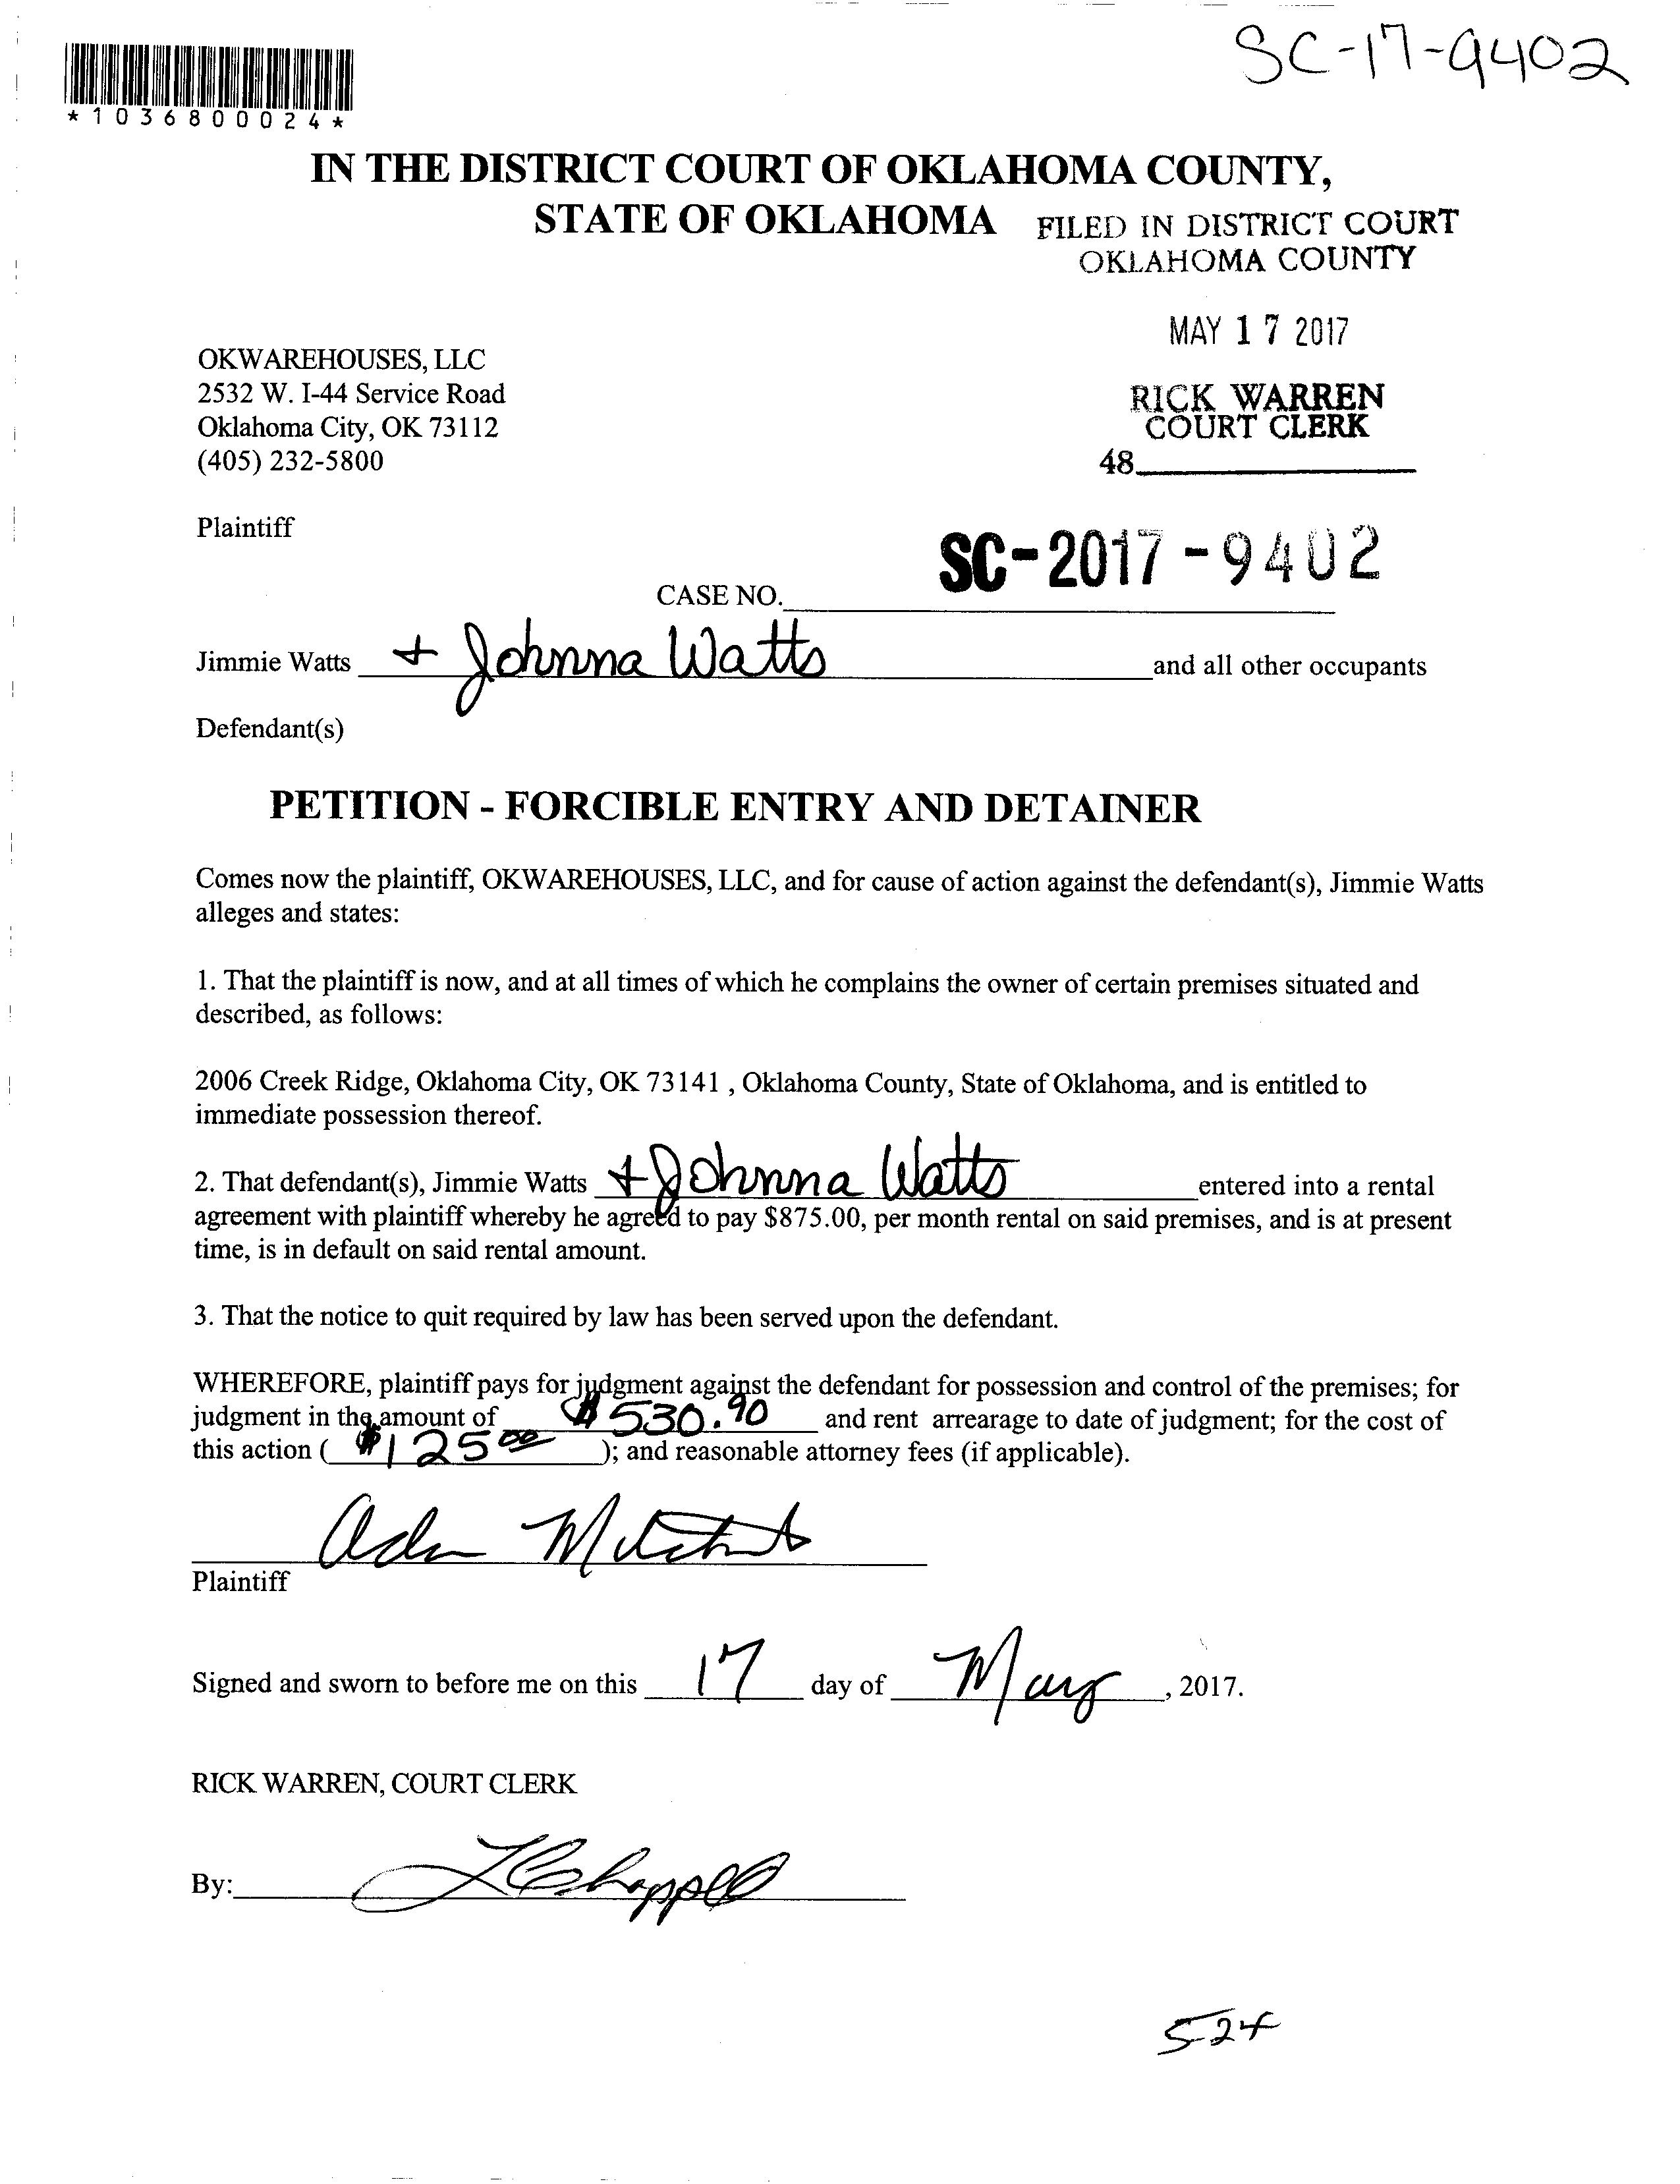 SC-17-9402
*1036800024*
IN THE DISTRICT COURT OF OKLAHOMA COUNTY,
STATE OF OKLAHOMA
FILED IN DISTRICT COURT
OKLAHOMA COUNTY
MAY 17 2017
RICK WARREN
COURT CLERK
48
OKWAREHOUSES, LLC
2532 W. I-44 Service Road
Oklahoma City, OK 73112
(405) 232-5800
Plaintiff
CASE NO. SC-2017-9402
Jimmie Watts + Johnna Watts and all other occupants
Defendant(s)
PETITION - FORCIBLE ENTRY AND DETAINER
Comes now the plaintiff, OKWAREHOUSES, LLC, and for cause of action against the defendant(s), Jimmie Watts
alleges and states:
1. That the plaintiff is now, and at all times of which he complains the owner of certain premises situated and
described, as follows:
2006 Creek Ridge, Oklahoma City, OK 73141 , Oklahoma County, State of Oklahoma, and is entitled to
immediate possession thereof.
2. That defendant(s), Jimmie Watts + Johnna Watts entered into a rental
agreement with plaintiff whereby he agreed to pay $875.00, per month rental on said premises, and is at present
time, is in default on said rental amount.
3. That the notice to quit required by law has been served upon the defendant.
WHEREFORE, plaintiff pays for judgment against the defendant for possession and control of the premises; for
judgment in the amount of $530.90 and rent arrearage to date of judgment; for the cost of
this action ( $125 00 ); and reasonable attorney fees (if applicable).
Plaintiff
Signed and sworn to before me on this 17 day of May, 2017.
RICK WARREN, COURT CLERK
By: Chappell
524